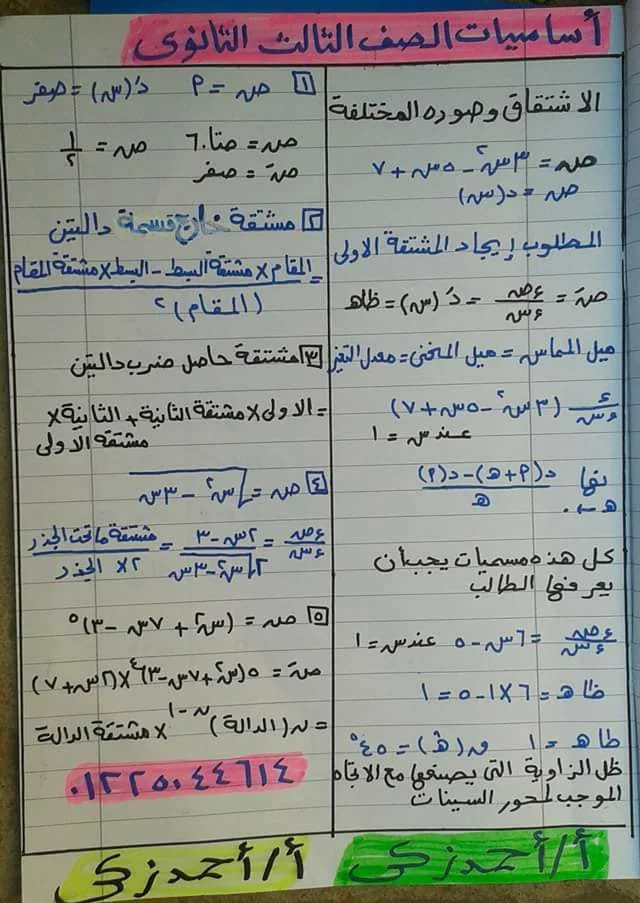 أساسيات الصف الثالث الثانوى
الاشتقاق وصوره المختلفة
ص = ٣س٢ - ٥س + ٧
ص = د(س)
المطلوب إيجاد المشتقة الاولى
صَ = ءص/ءس = دَ(س) = ظاهـ
ميل المماس = ميل المنحنى = معدل التغير
ء/ءس (٣س٢ - ٥س + ٧)
عند س = ١
نها هـ←٠ د(٩+هـ)-د(٩)/هـ
كل هذه مسميات يجب أن
يعرفها الطالب
ءص/ءس = ٦س - ٥ عند س = ١
ظاهـ = ٦×١-٥ = ١
طاهـ = ١ ق(هـ) = ٤٥°
ظل الزاوية التى يصنعها مع الاتجاه
الموجب لمحور السينات
١ ص = ٩ دَ(س) = صفر
ص = حتا ٦٠ ص = ١/٢
صَ = صفر
٢ مشتقة خارج قسمة دالتين
= المقام × مشتقة البسط - البسط × مشتقة المقام
(المقام)٢
٣ مشتقة حاصل ضرب دالتين
= الاولى × مشتقة الثانية + الثانية ×
مشتقة الاولى
٤ ص = √س٢ - ٣س
ءص/ءس = ٢س-٣/٢√س٢-٣س = مشتقة ماتحت الجذر/٢× الجذر
٥ ص = (س٢ + ٧س - ٣)٥
صَ = ٥(س٢+٧س-٣)٤×(٢س+٧)
= ن(الدالة)ن-١ × مشتقة الدالة
٠١٢٢٥٠٤٤٦١٤
أ/أحمد زكى
أ/أحمد زكى